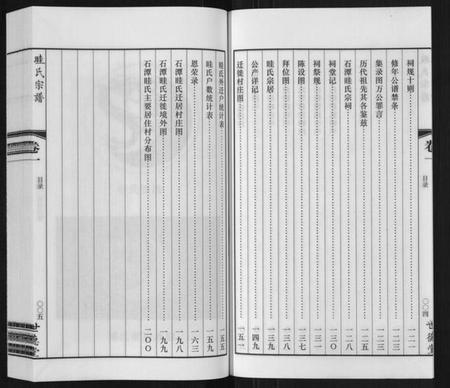 祠规十则 一二一
修年公谱禁条 一二二
集录图万公罪言 一二三
历代祖先其各鉴兹 一二五
石潭眭氏宗祠 一二八
祠堂记 一三〇
祠祭规 一三一
陈设图 一三七
拜位图 一三八
眭氏宗居 一三九
公产详记 一四九
迁徙村庄图 一五二
目录
〇〇四
世德堂
眭氏宗谱
卷一
目录
〇〇五
世德堂
眭氏外迁户统计表 一五五
眭氏户数统计表 一五九
恩荣录 一六三
石潭眭氏迁居村庄图 一九八
石潭眭氏迁徙境外图 一九九
石潭眭氏主要居住村分布图 二〇〇